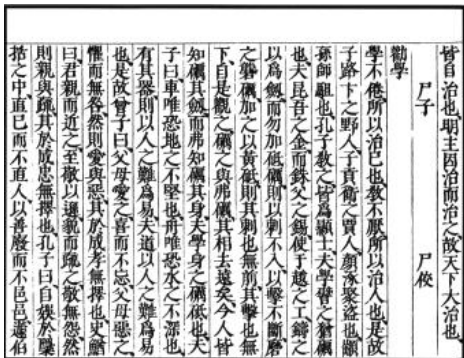 皆自治也明主因治而治之故天下大治也
尸子　尸佼
勸學
學不倦所以治己也教不厭所以治人也是故
子路卞之野人子貢衛之賈人顏涿聚盜也顓
孫師駔也孔子敎之皆爲顯士夫學譬之猶礪
也夫昆吾之金而銖父之錫使于越之工鑄之
以爲劍而勿加砥礪則以刺不入以擊不斷磨
之礱礪加之以黃砥則其刺也無前其擊也無
下自是觀之礪之與弗礪其相去遠矣今人皆
知礪其劍而弗知礪其身夫學身之礪砥也夫
子曰車唯恐地之不堅也舟唯恐水之不深也
有其器則以人之難爲易夫道以人之難爲易
也是故曾子曰父母愛之喜而不忘父母惡之
懼而無咎然則愛與惡其於成孝無擇也史鰌
曰君親而近之至敬以遜貌而疏之敬無怨然
則親與疏其於成忠無擇也孔子曰自娛於檃
括之中直己而不直人以善廢而不邑邑蘧伯